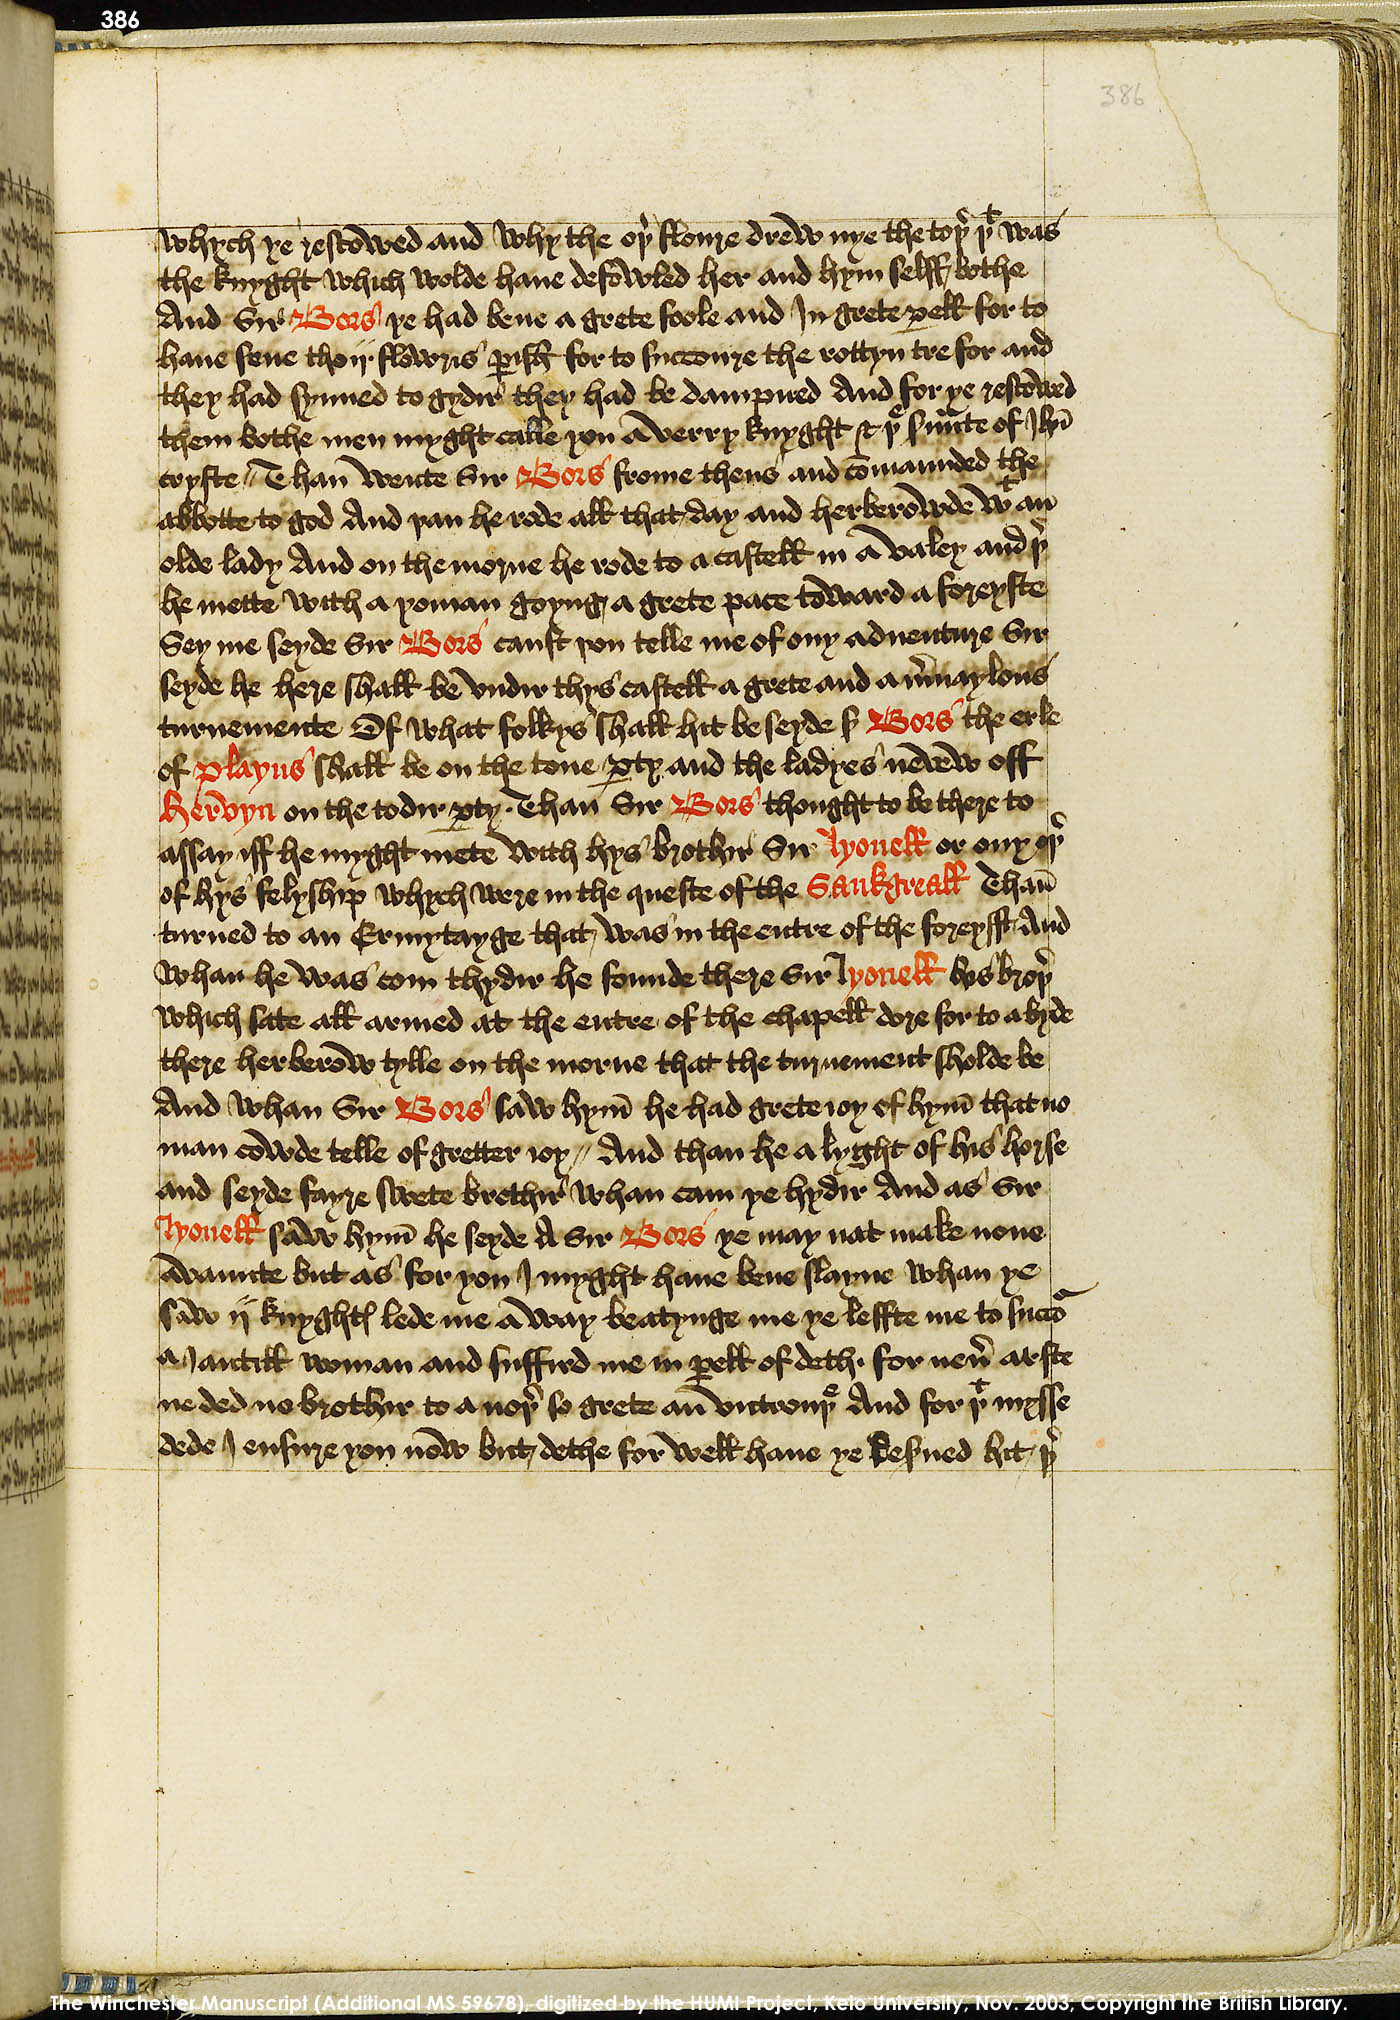 386
386
whych ye rescowed and why the oþr floure drew nye the toþr þt was
the knyght which wolde haue defowled her and hym selff bothe
And Sir Bors ye had bene a grete foole and In grete pell for to
haue sene tho ij flowris pissh for to succoure the rottyn tre for and
they had synned to gydir they had be dampned And for ye rescowed
them bothe men myght calle you a verry knyght & þe s̄uūte of Jh̄u
cryste // Than wente Sir Bors frome thens and cōmaunded the
abbotte to god And þan he rode all that day and herberowde wt an
olde lady And on the morne he rode to a castell in a valey and þr
he mette with a yoman goyng a grete pace toward a foreyste
Sey me seyde Sir Bors canst þou telle me of ony aduenture Sir
seyde he here shall be vndir thys castell a grete and a m̄uaylous
turnemente Of what folkys shall hit be seyde sr Bors the erle
of playns shall be on the tone pty and the ladyes nevew off
Hervyn on the todir pty. Than Sir Bors thought to be there to
assay iff he myght mete with hys brothir Sir lyonell or ony oþr
of hys felyship whych were in the queste of the Sankgreall Than̄
turned to an Ermytayge that was in the entre of the foreysft And
whan he was com thydir he founde there Sir lyonell hys broþr
which sate all armed at the entre of the chapell dore for to a byde
there herberow tylle on the morne that the turnement sholde be
And whan Sir Bors saw hym̄ he had grete ioy of hym̄ that no
man cowde telle of gretter ioy // And than he a lyght of his horse
and seyde fayre swete brothir whan cam ye hydir And as Sir
lyonell saw hym̄ he seyde A Sir Bors ye may nat make none
avaunte but as for you I myght haue bene slayne whan ye
saw ij knyghtꝭ lede me a way beatynge me ye leffte me to succo
a Jantill woman and suffird me in pell of deth. for neūr arste
ne ded no brothir to a noþr so grete an vntrouþe And for þt mysse
dede I ensure you now but dethe for well haue ye deſued hit þr
The Winchester Manuscript (Additional MS 59678), digitized by the HUMI Project, Keio University, Nov. 2003, Copyright the British Library.